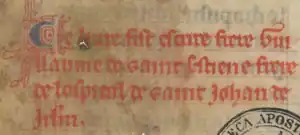 Ce liure fist escriure frere Gui
llaume de saint Estiene frere
de lospital de saint Johan de
Jrlm.
ECA APOST